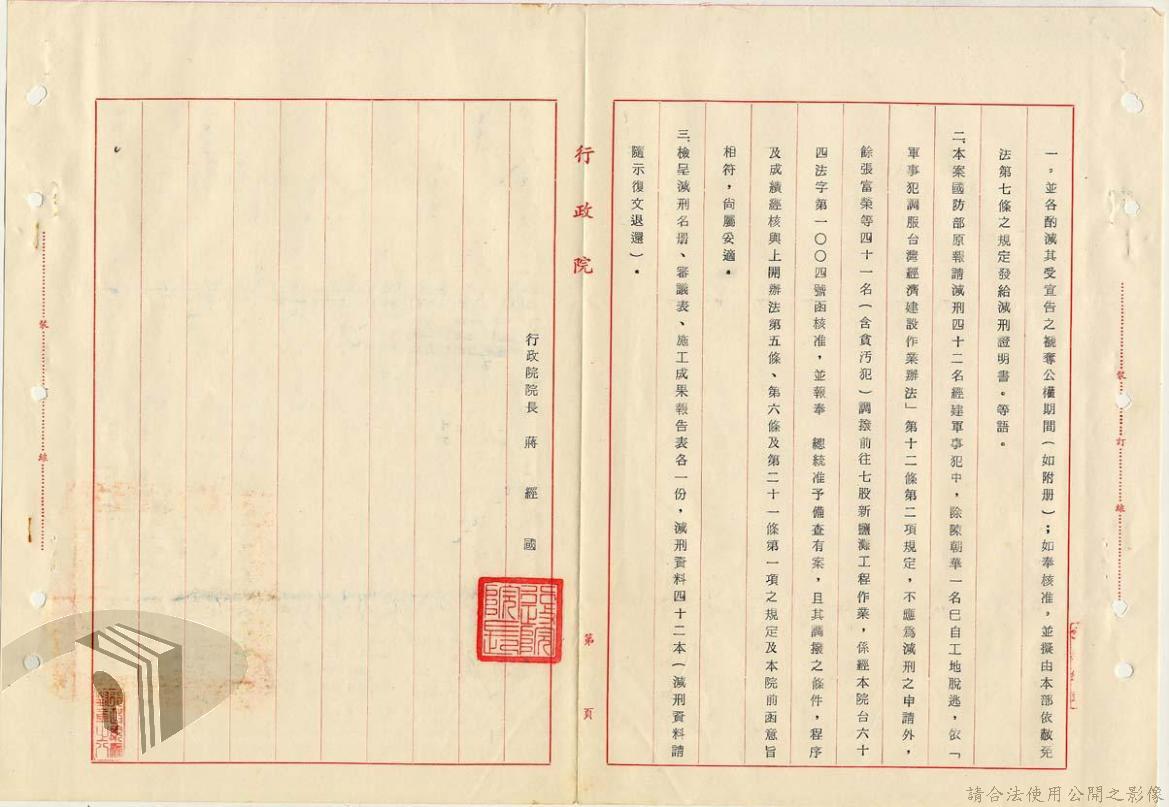 一，並各酌減其受宣告之褫奪公權期間（如附册）；如奉核准，並擬由本部依赦免
法第七條之規定發給減刑證明書。等語。
二、本案國防部原報請減刑四十二名經建軍事犯中，除陳朝華一名已自工地脫逃，依「
軍事犯調服台灣經濟建設作業辦法」第十二條第二項規定，不應為減刑之申請外，
餘張富榮等四十一名（含貪汚犯）調撥前往七股新鹽灘工程作業，係經本院台六十
四法字第一〇〇四號函核准，並報奉　總統准予備查有案，且其調撥之條件，程序
及成績經核與上開辦法第五條、第六條及第二十一條第一項之規定及本院前函意旨
相符，尙屬妥適。
三、檢呈減刑名册、審議表、施工成果報告表各一份，減刑資料四十二本（減刑資料請
隨示復文退還）。
行政院
第　頁
行政院院長　蔣　經　國
行政院院長
裝　訂　線
裝　線
請合法使用公開之影像